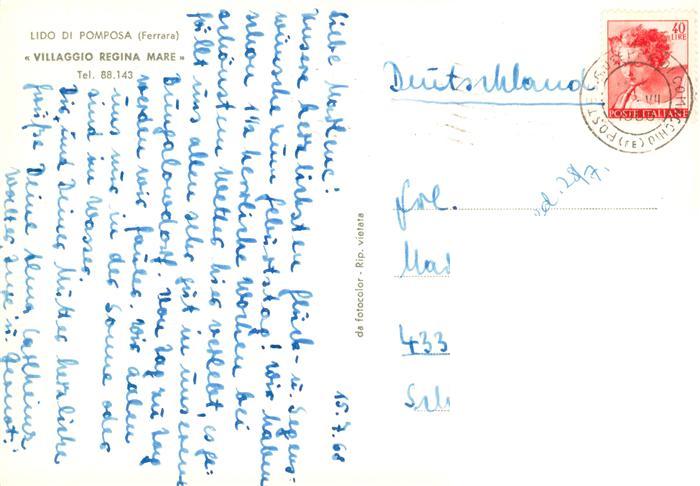 LIDO DI POMPOSA (Ferrara)
« VILLAGGIO REGINA MARE »
Tel. 88.143
15.7.68
Liebe Marlene!
Unsere herzlichsten Glück- u. Segens-
wünsche zum Geburtstag! Wir haben
schon 1½ herrliche Wochen bei
schönstem Wetter hier verlebt, es ge-
fällt uns allen sehr gut in unserem
Bungalowdorf. Von Tag zu Tag
werden wir fauler. Wir aalen
uns nur in der Sonne oder
sind im Wasser.
Dir und Deiner Mutter herzliche
Grüße Deine
Walter, Inge u. Gernot.
da fotocolor - Rip. vietata
40
LIRE
POSTE ITALIANE
COMACCHIO (FE)
Deutschland
Frl.
Mar
433